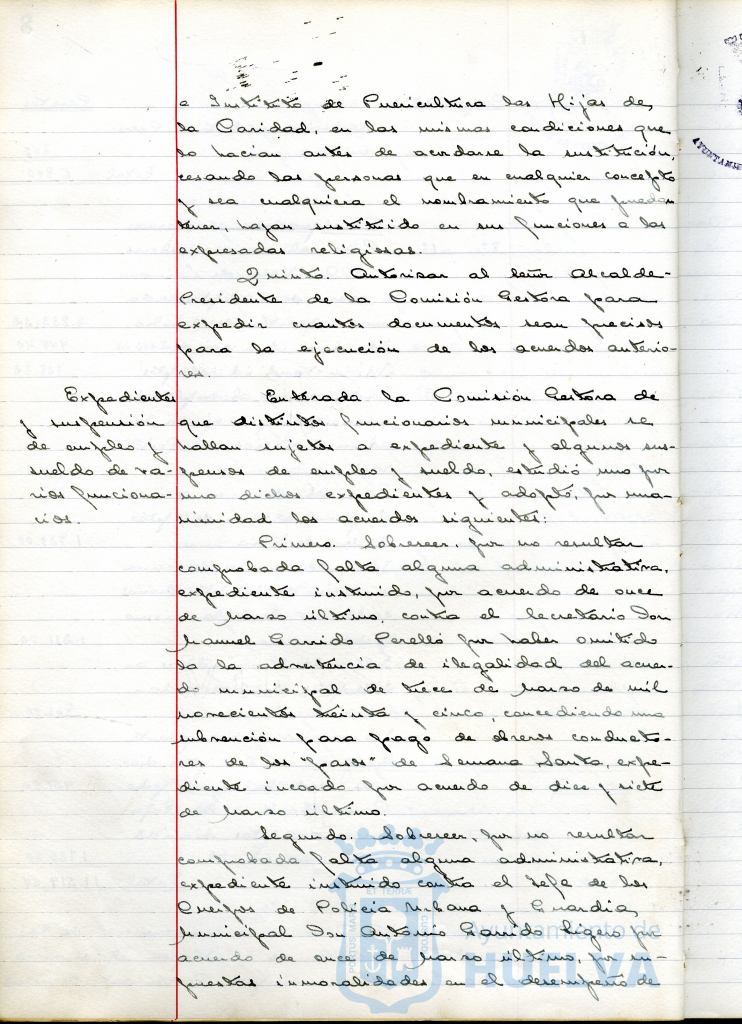 e Instituto de Puericultura las Hijas de
la Caridad, en las mismas condiciones que
lo hacían antes de acordarse la sustitución,
cesando las personas que en cualquier concepto
y sea cualquiera el nombramiento que puedan
tener, hayan sustituido en sus funciones a las
expresadas religiosas.
Quinto. Autorizar al Señor Alcalde-
Presidente de la Comisión Gestora para
expedir cuantos documentos sean precisos
para la ejecución de los acuerdos anterio-
res.
Expedientes
y suspensión
de empleo y
sueldo de va-
rios funciona-
rios.
Enterada la Comisión Gestora de
que distintos funcionarios municipales se
hallan sujetos a expediente y algunos sus-
pensos de empleo y sueldo, estudió uno por
uno dichos expedientes y adoptó, por una-
nimidad los acuerdos siguientes:
Primero. Sobreseer, por no resultar
comprobada falta alguna administrativa,
expediente instruido, por acuerdo de once
de Marzo último, contra el Secretario Don
Manuel Garrido Perelló por haber omitido
la la advertencia de ilegalidad del acuer-
do municipal de trece de Marzo de mil
novecientos treinta y cinco, concediendo una
subvención para pago de obreros conducto-
res de los "pasos" de Semana Santa, expe-
diente incoado por acuerdo de diez y siete
de Marzo último.
Segundo. Sobreseer, por no resultar
comprobada falta alguna administrativa,
expediente instruido contra el Jefe de los
Cuerpos de Policía Urbana y Guardia
Municipal Don Antonio Garrido Ligero por
acuerdo de once de Marzo último, por su-
puestas inmoralidades en el desempeño de
Ayuntamiento de
HUELVA